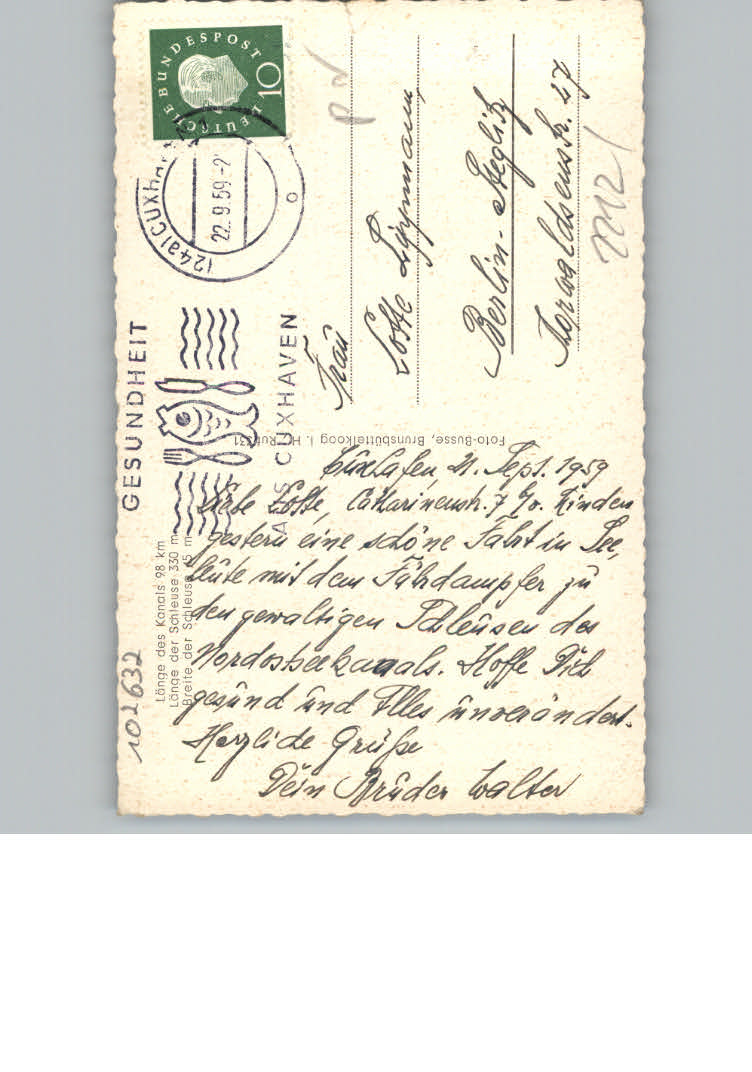 DEUTSCHE BUNDESPOST
10
(24a) CUXHAVEN
22.9.59-2
o
GESUNDHEIT
AUS CUXHAVEN
Frau
Lotte
Berlin-Steglitz
Torwaldsenstr. 27
Foto-Busse, Brunsbüttelkoog
Länge des Kanals 98 km
Länge der Schleuse 330 m
Breite der Schleuse 45 m
102632
Cuxhafen, 21. Sept. 1959
Liebe Lotte, Catharinenstr. 7 b/v. Linden
gestern eine schöne Fahrt in See,
heute mit dem Fährdampfer zu
den gewaltigen Schleusen des
Nordostseekanals. Hoffe Dich
gesund und Alles unverändert.
Herzliche Grüße
Dein Bruder Walter